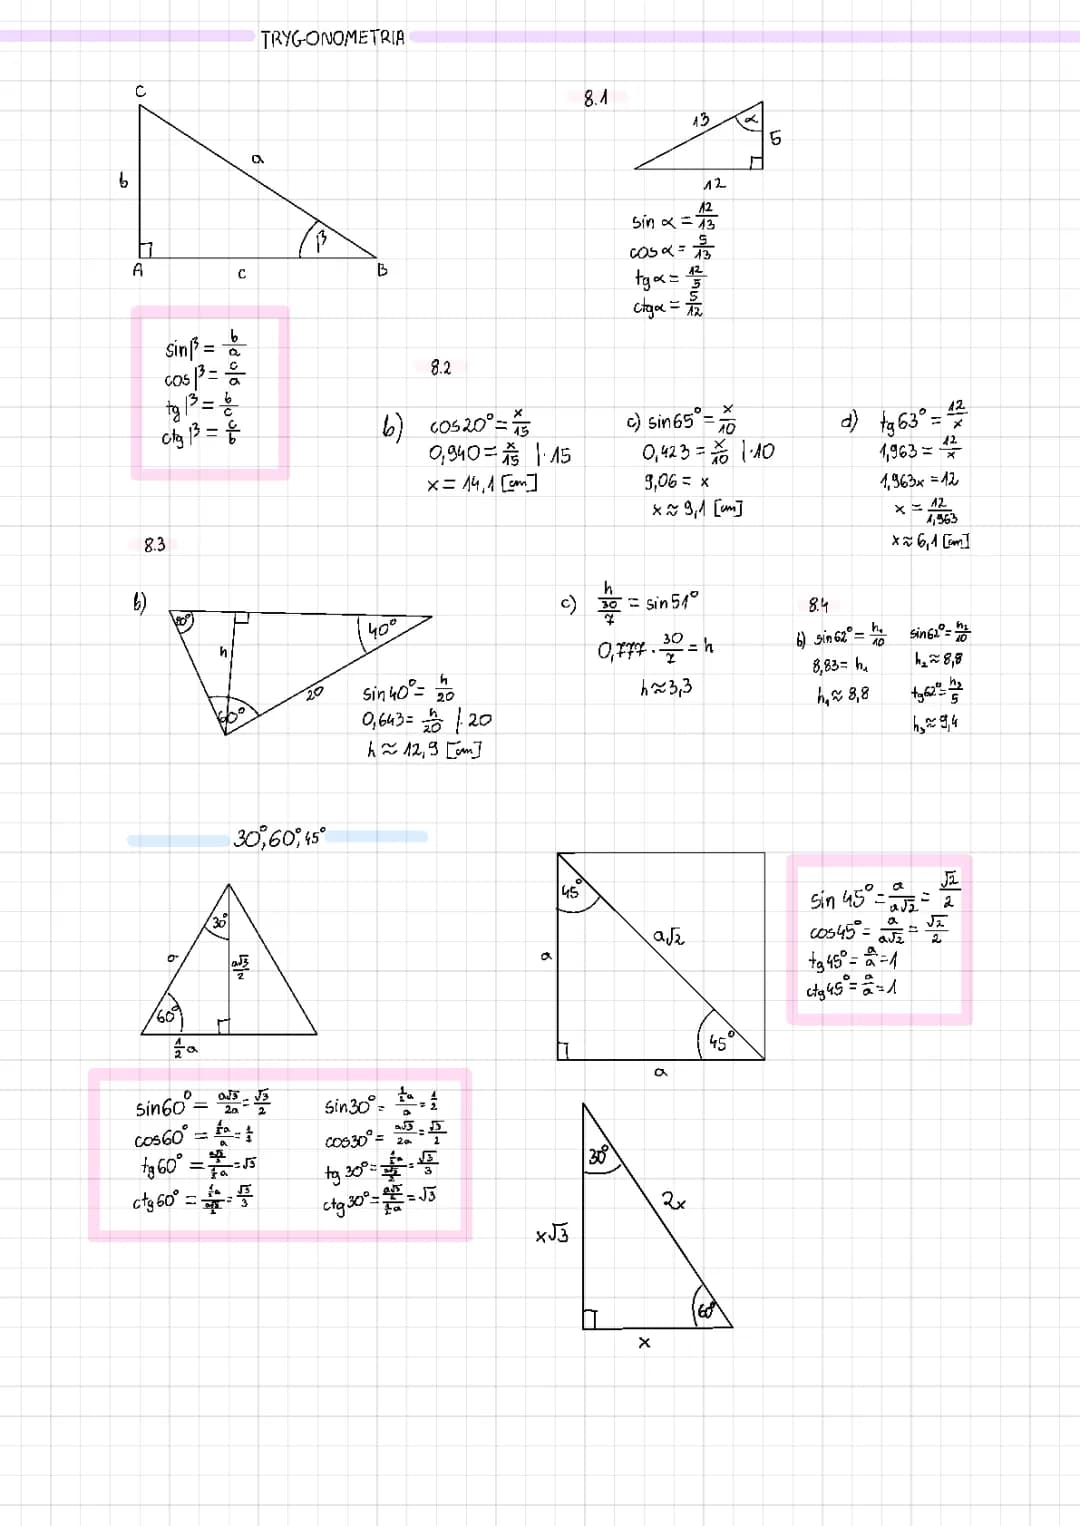 TRYGONOMETRIA
C
a
b
β
A
c
B
sinβ = b/a
cosβ = c/a
tgβ = b/c
ctgβ = c/b
8.1
13
α
5
12
sin α = 12/13
cosα = 5/13
tgα = 12/5
ctgα = 5/12
8.2
b) cos20° = x/15
0,940 = x/15 |·15
x = 14,1 [cm]
c) sin65° = x/10
0,423 = x/10 |·10
9,06 = x
x ≈ 9,1 [cm]
d) tg63° = 12/x
1,963 = 12/x
1,963x = 12
x = 12/1,963
x ≈ 6,1 [cm]
8.3
b)
80°
40°
h
60°
20
sin40° = h/20
0,643 = h/20 |·20
h ≈ 12,9 [cm]
c) h/(30/7) = sin51°
0,777 · 30/7 = h
h ≈ 3,3
8.4
b) sin62° = h₁/10
8,83 = h₁
h₁ ≈ 8,8
sin62° = h₂/10
h₂ ≈ 8,8
tg62° = h₃/5
h₃ ≈ 9,4
30°, 60°, 45°
30°
a
a√3/2
60°
1/2 a
sin60° = a√3/2a = √3/2
cos60° = 1/2a/a = 1/2
tg60° = (a√3/2)/(1/2a) = √3
ctg60° = (1/2a)/(a√3/2) = √3/3
sin30° = 1/2a/a = 1/2
cos30° = a√3/2a = √3/2
tg30° = (1/2a)/(a√3/2) = √3/3
ctg30° = (a√3/2)/(1/2a) = √3
45°
a√2
a
45°
a
sin45° = a/a√2 = √2/2
cos45° = a/a√2 = √2/2
tg45° = a/a = 1
ctg45° = a/a = 1
30°
2x
x√3
60°
x